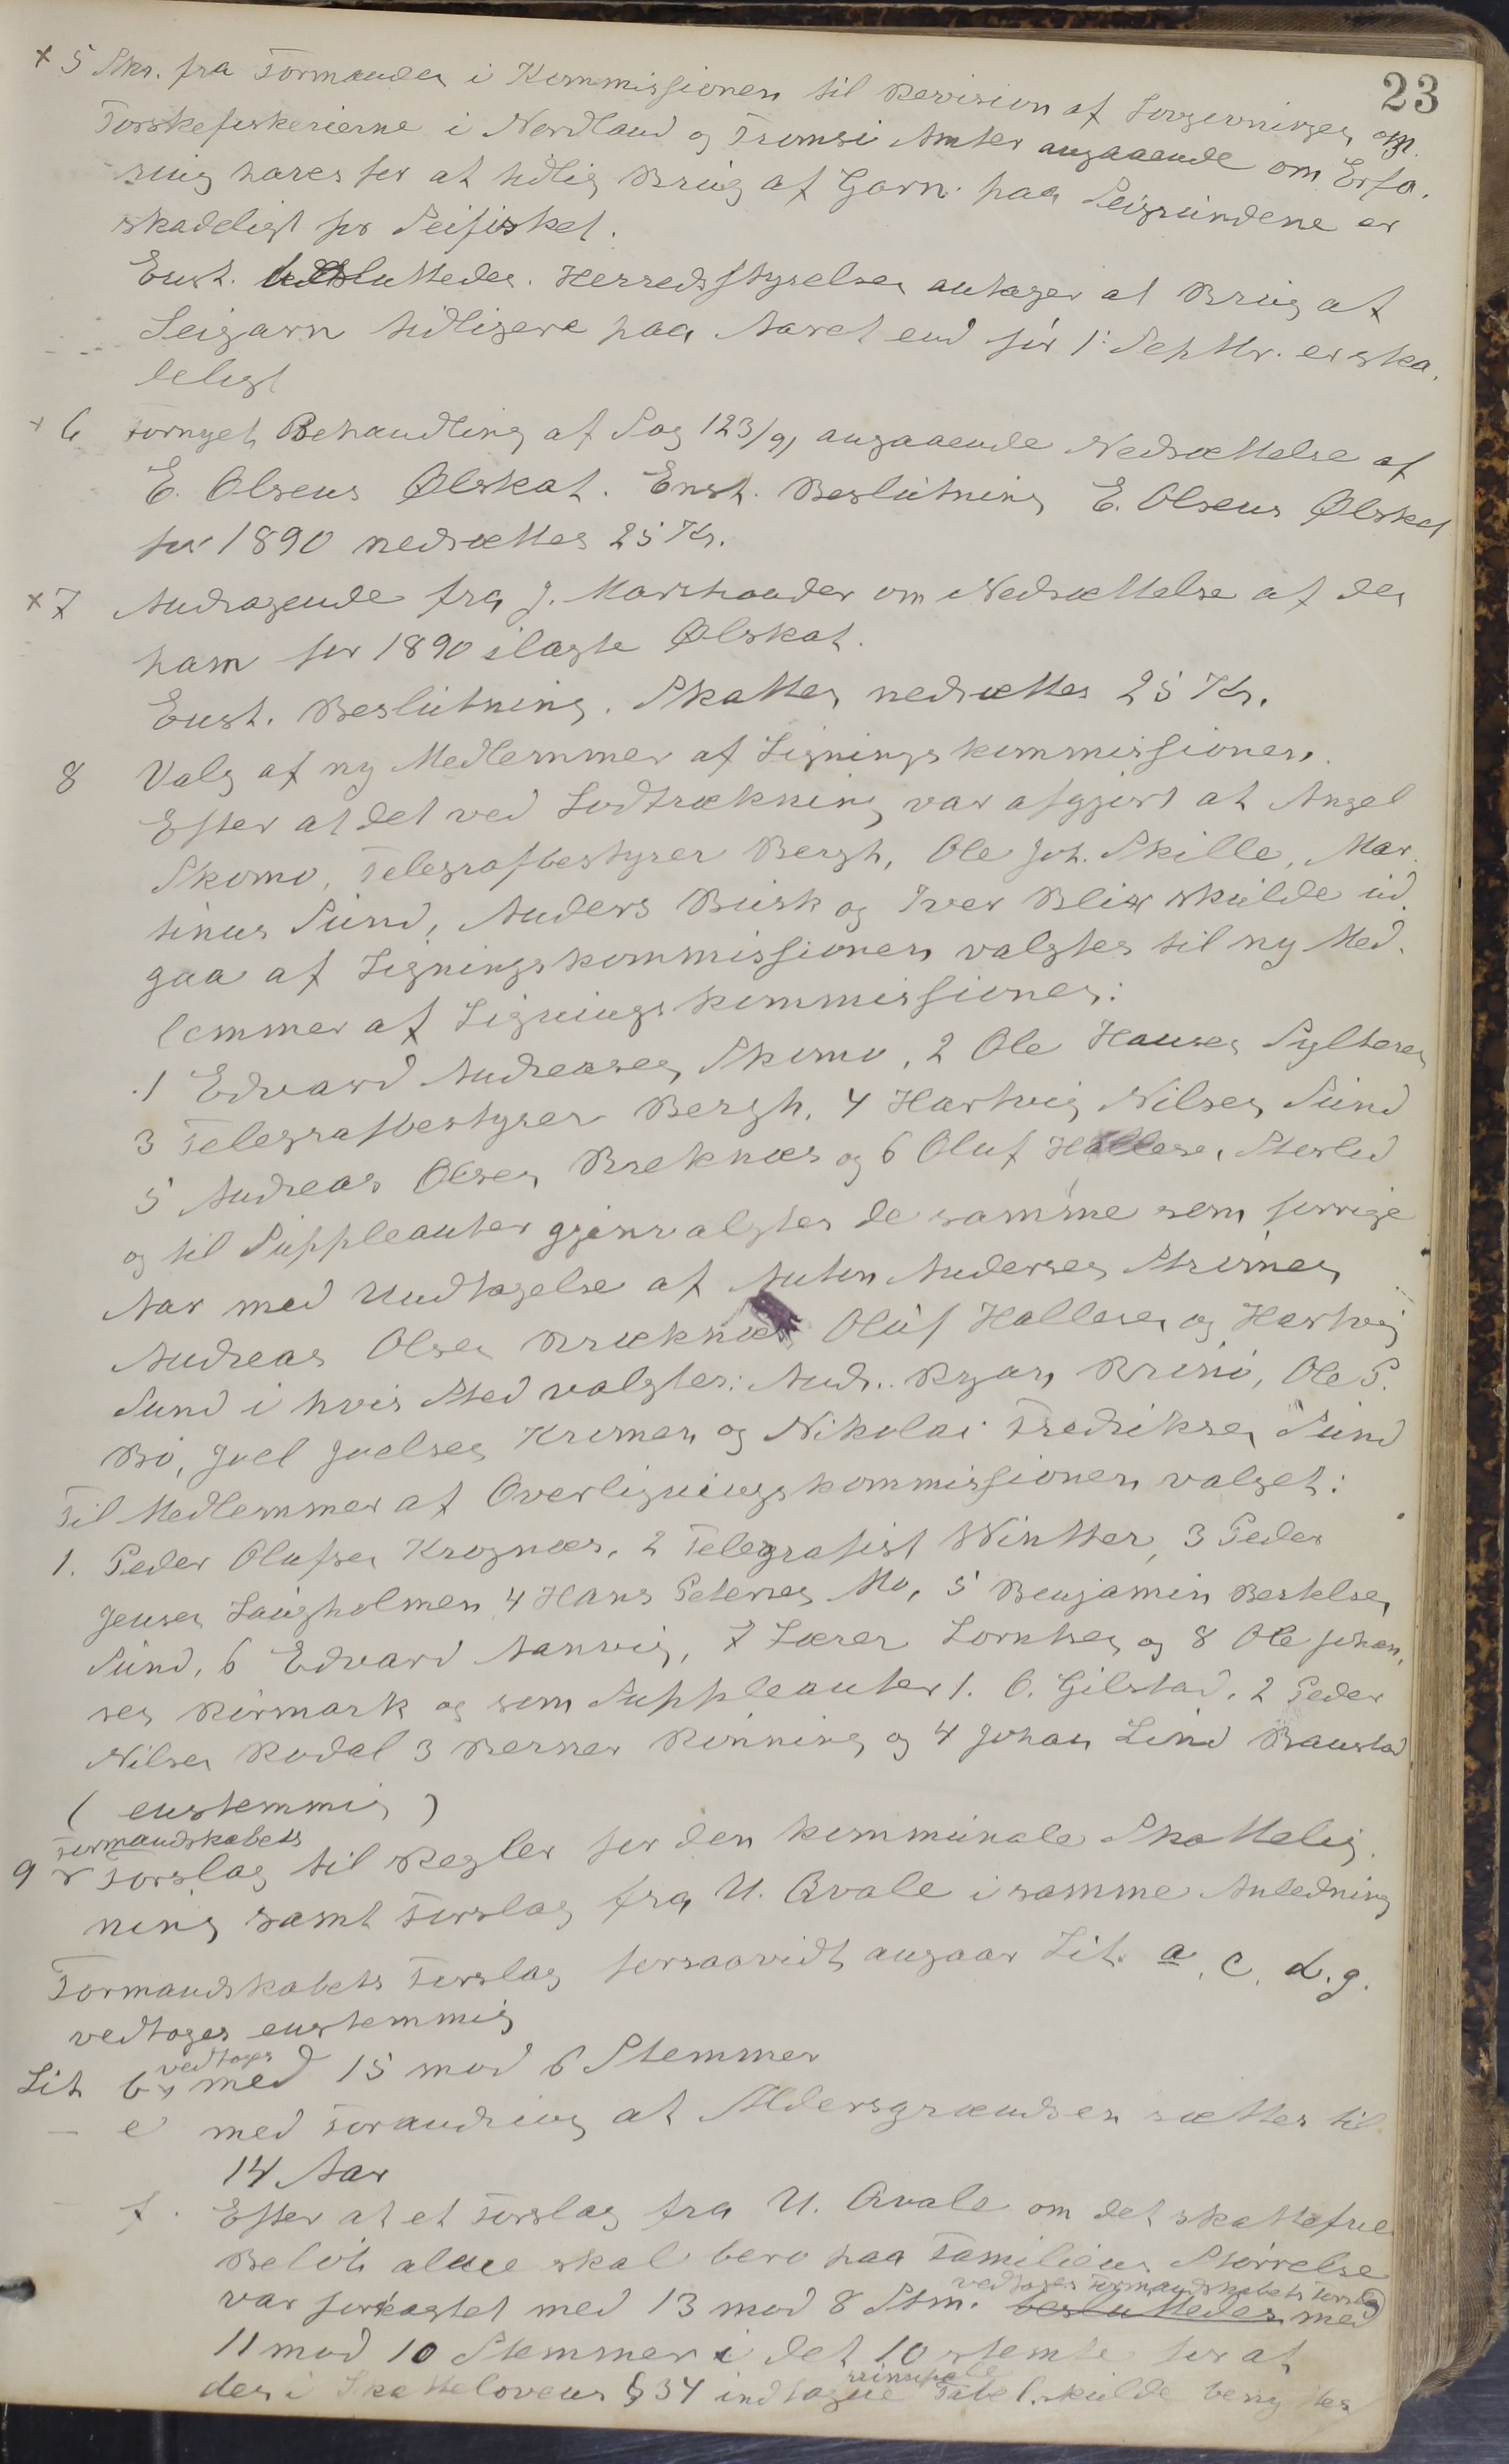 23
x 5 Skr. fra Formanden i Kommissionen til Revision af Lovgivningen om
Torskefiskerierne i Nordland og Tromsø Amter angaaende om Erfa.
ring haves for at tidlig Brug af Garn paa Seigrundene er
skadeligt for Seifisket.
Enst. besluttedes. Herredsstyrelsen antager at Brug af
Seigarn tidligere paa Aaret end før 1ste Septbr. er ska.
deligt
x 6 Fornyet Behandling af Sag 123/91 angaaende Nedsættelse af
E. Olsens Ølskat. Enst. Beslutning E. Olsens Ølskat
for 1890 nedsættes 25 Kr.
x 7 Andragende fra J. Marhaader om Nedsættelse af den
ham for 1890 ilagte Ølskat.
Enst. Beslutning. Skatten nedsættes 25 Kr.
8 Valg af ny Medlemmer af Ligningskommissionen.
Efter at det ved Lodtrækning var afgjort at Angel
Skomo, Telegrafbestyrer Bergh, Ole Joh. Skille, Mar.
tinus Sund, Anders Busk og Iver Blix skulde ud.
gaa af Ligningskommissionen valgtes til ny Med.
lemmer af Ligningskommissionen:
1 Edvard Andreasen Skomo, 2 Ole Hansen Sylteren
3 Telegrafbestyrer Bergh, 4 Hartvig Nilsen Sund
5 Andreas Olsen Breknæs og 6 Oluf Hallesen Sterlid
og til Suppleanter gjenvalgtes de samme som forrige
Aar med Undtagelse af Anton Andersen Strømen
Andreas Olsen Bræknæs Oluf Hallesen og Hartvig
Sund i hvis Sted valgtes: Andr. Ryan Brinø, Ole P.
Bø, Joel Joelsen Kromen og Nikolai Fredriksen Sund
Til Medlemmer af Overligningskommissionen valget:
1. Peder Olufsen Krognæs, 2 Telegrafist Winther, 3 Peder
Jensen Langholmen 4 Hans Petersen Mo, 5 Benjamin Bertelsen
Sund, 6 Edvard Aanvig, 7 Lærer Lorntsen og 8 Ole Johan.
sen Rørmark og som Suppleanter 1. O. Gilstad, 2 Peder
Nilsen Rodal 3 Berner Rønning og 4 Johan Lind Baustad
(enstemmig)
Formandskabets
9 Forslag til Regler for den kommunale Skattelig.
ning samt Forslag fra U. Qvale i samme Anledning
Formandskabets Forslag forsaavidt angaar Lit. a, c, d. g.
vedtoges enstemmig
vedtoges
Lit b med 15 mod 6 Stemmer
— e med Forandring at Aldersgrændsen sættes til
14 Aar
— f. Efter at et Forslag fra U. Qvale om det skattefrie
Beløb alene skal bero paa Familiens Størrelse
vedtoges Formandskabets Forslag
var forkastet med 13 mod 8 Stm. besluttedes med
11 mod 10 Stemmer i det 10 stemte for at
prinsipale
den i Skattelovens § 34 indtagne Tabel skulde benyttes